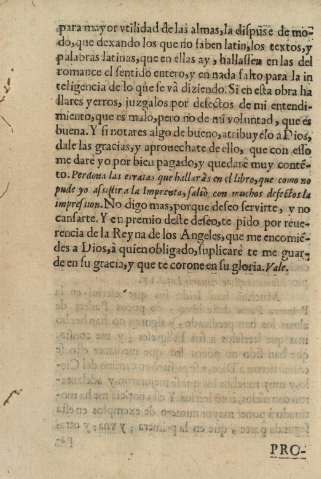 para mayor vtilidad de las almas, la dispuse de mo-
do, que dexando los que no saben latin, los textos, y
palabras latinas, que en ellas ay, hallassen en las del
romance el sentido entero, y en nada falto para la in
teligencia de lo que se và diziendo. Si en esta obra ha
llares yerros, juzgalos por defectos de mi entendi-
miento, que es malo, pero no de mi voluntad, que es
buena. Y si notares algo de bueno, atribuyelo a Dios,
dale las gracias, y aprouechate de ello, que con esso
me darè yo por bien pagado, y quedarè muy contē-
to. Perdona las erratas que hallaràs en el libro, que como no
pude yo assistir a la Imprenta, saliò con muchos defectos la
impression. No digo mas, porque deseo servirte, y no
cansarte. Y en premio deste deseo, te pido por reue-
rencia de la Reyna de los Angeles, que me encomiē-
des a Dios, à quien obligado, suplicarè te me guar-
de en su gracia, y que te corone en su gloria. Vale.
PRO-